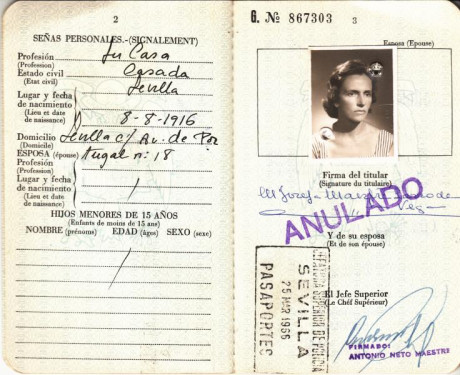 2
SEÑAS PERSONALES.-(SIGNALEMENT)
Profesión Su Casa
(Profession)
Estado civil Casada
(Etat civil)
Lugar y fecha Sevilla
de nacimiento
(Lieu et date
de naissance) 8-8-1916
Domicilio Sevilla c/ Av. de Por
(Domicile)
ESPOSA (épouse) tugal nº: 18
Profesión
(Profession)
Lugar y fecha
de nacimiento
(Lieu et date
de naissance)
HIJOS MENORES DE 15 AÑOS
(Enfants de moins de 15 ans)
NOMBRE (prénoms) EDAD (âges) SEXO (sexe)
G. Nº 867303 3
Esposa (Epouse)
Firma del titular
(Signature du titulaire)
Mª Josefa
ANULADO
Y de su esposa
(Et de son épouse)
JEFATURA SUPERIOR DE POLICIA
SEVILLA
25 MAR 1966
PASAPORTES
El Jefe Superior
(Le Chéf Supérieur)
FIRMADO:
ANTONIO NETO MAESTRE